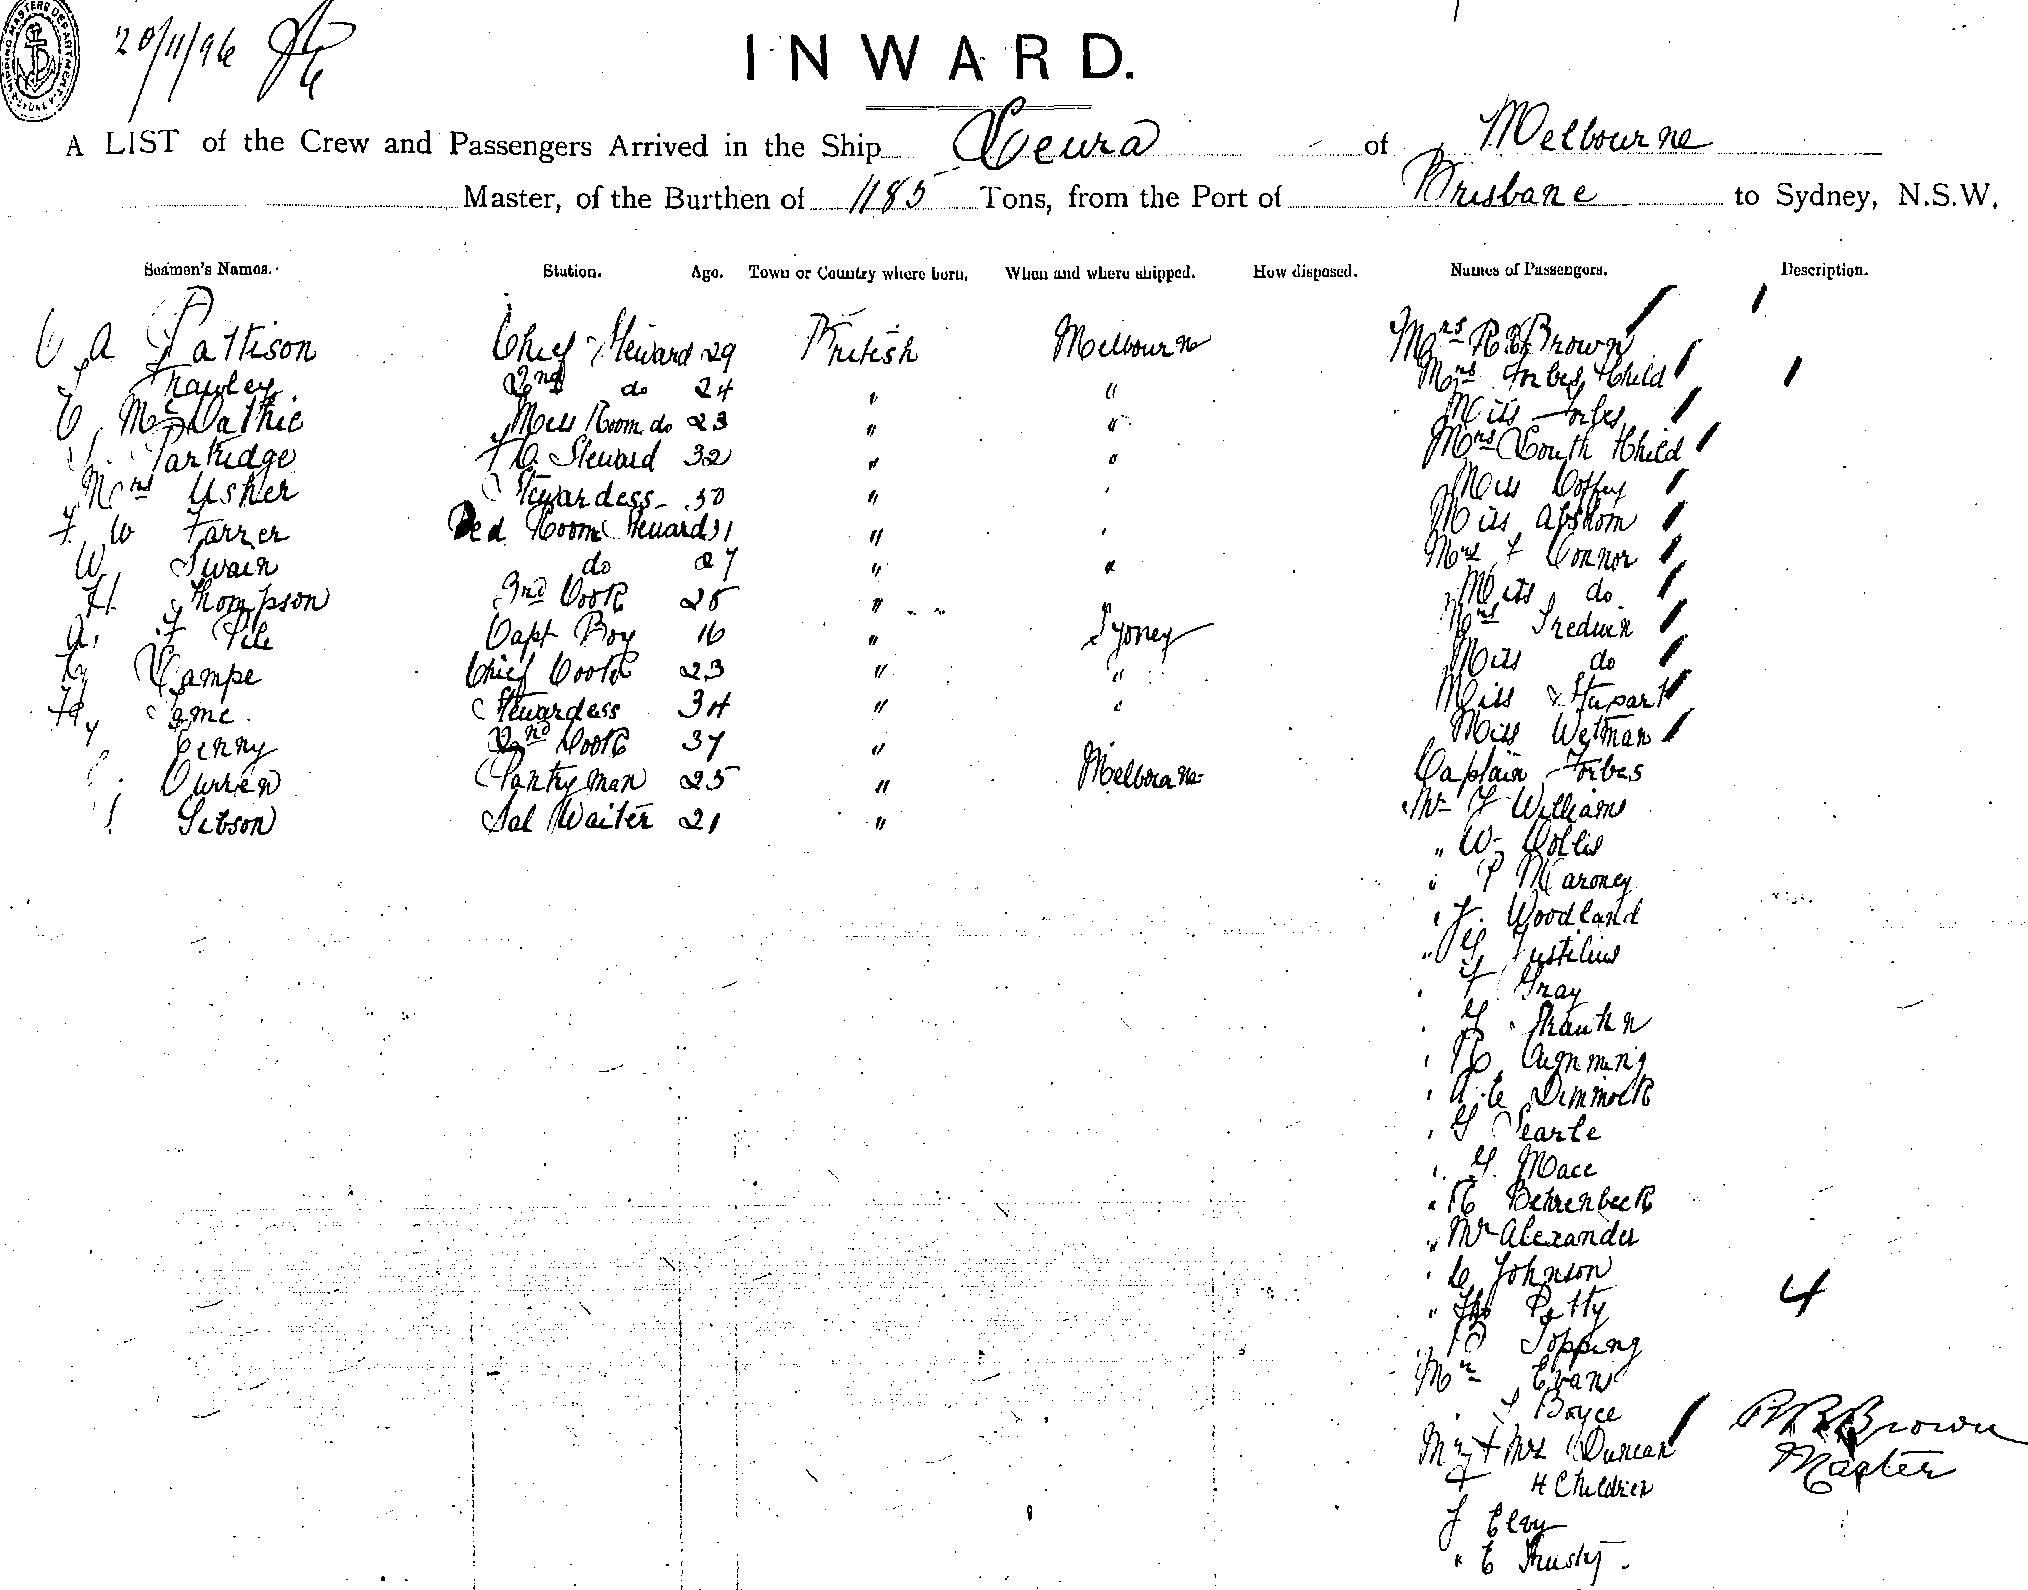 SHIPPING MASTERS DEPARTMENT
20/11/96
INWARD.
A LIST of the Crew and Passengers Arrived in the Ship Leura of Melbourne
Master, of the Burthen of 1185 Tons, from the Port of Brisbane to Sydney, N.S.W.
Seamen's Names. Station. Age. Town or Country where born. When and where shipped. How disposed. Names of Passengers. Description.
C A Pattison Chief Steward 29 British Melbourne
Frawley 2nd do 24 " "
McWathie Mess Room do 23 " "
Partridge F C Steward 32 " "
Mrs Usher Stewardess 30 "
F W Farrer Bed Room Steward 31 "
W Swain do 27 " "
H Thompson 3rd Cook 25 "
A. F Pile Capt Boy 16 " Sydney
Campe Chief Cook 23 " "
Stewardess 34 " "
2nd Cook 37 "
Curren Pantryman 25 " Melbourne
Gibson Sal Waiter 21 "
Mrs R R Brown
Mrs Forbes Child
Miss Forbes
Mrs South Child
Miss Coffey
Miss Absolom
Mrs F Connor
Miss do
Mrs Tredwen
Miss do
Miss Stupart
Miss Wetman
Captain Forbes
Mr J Williams
" W Collis
" P Maroney
" J. Woodland
" G
F Gray
G
R Cumming
A E Dimmock
G Searle
G. Mace
" R Behrenbeck
" Mr Alexander
C Johnson
" Thos Petty
B Topping
4
Mr Evans
Boyce
Mr + Mrs Duncan
4 Children
J Elvy
" E
R R Brown
Master